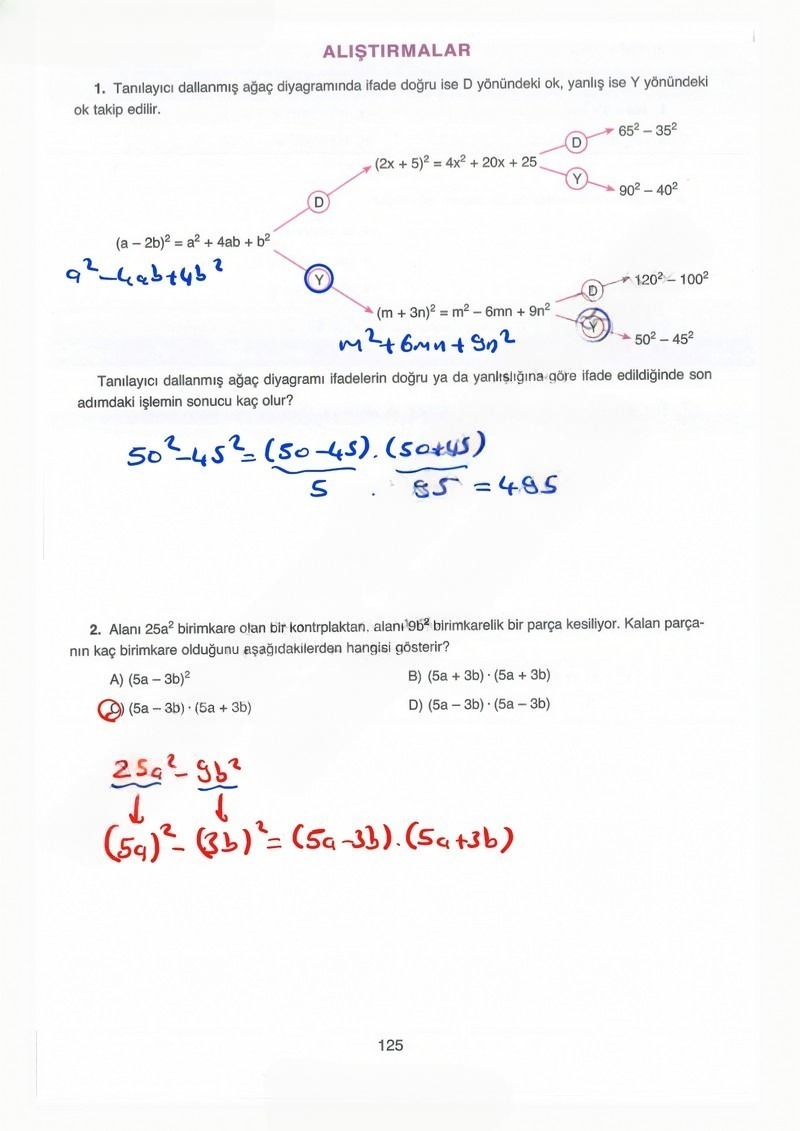 ALIŞTIRMALAR
1. Tanılayıcı dallanmış ağaç diyagramında ifade doğru ise D yönündeki ok, yanlış ise Y yönündeki
ok takip edilir.
D 65² – 35²
(2x + 5)² = 4x² + 20x + 25
Y 90² – 40²
D
(a – 2b)² = a² + 4ab + b²
a² – 4ab + 4b²
Y
D 120² – 100²
(m + 3n)² = m² – 6mn + 9n²
Y 50² – 45²
m² + 6mn + 9n²
Tanılayıcı dallanmış ağaç diyagramı ifadelerin doğru ya da yanlışlığına göre ifade edildiğinde son
adımdaki işlemin sonucu kaç olur?
50² – 45² = (50 – 45) . (50 + 45)
5 . 95 = 495
2. Alanı 25a² birimkare olan bir kontrplaktan, alanı 9b² birimkarelik bir parça kesiliyor. Kalan parça-
nın kaç birimkare olduğunu aşağıdakilerden hangisi gösterir?
A) (5a – 3b)² B) (5a + 3b) · (5a + 3b)
C) (5a – 3b) · (5a + 3b) D) (5a – 3b) · (5a – 3b)
25a² – 9b²
(5a)² – (3b)² = (5a – 3b) . (5a + 3b)
125